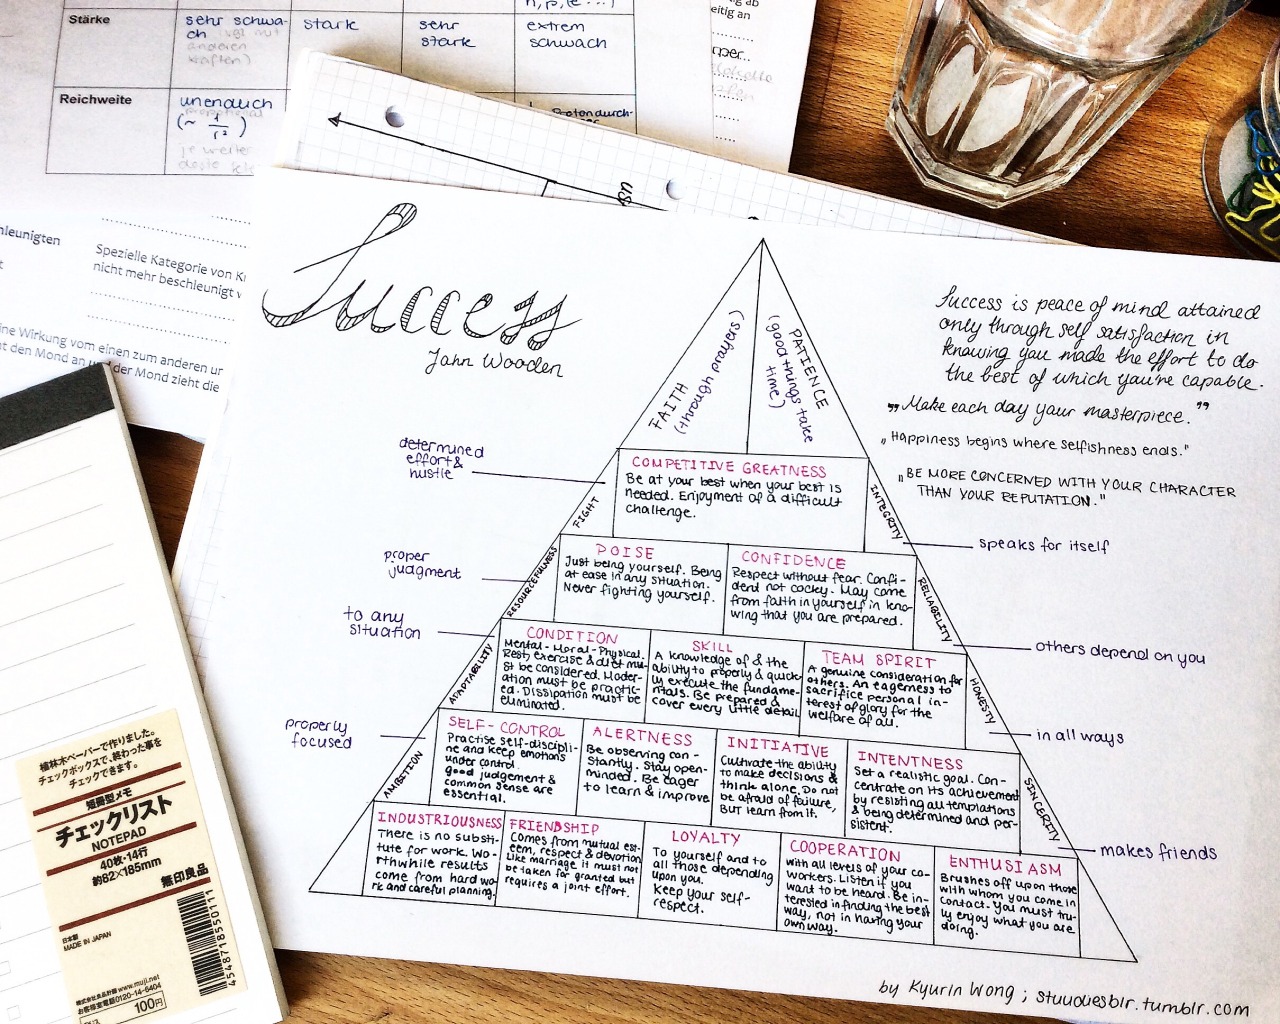 Stärke
sehr schwa-
ch (vgl mit
anderen
kräften)
stark
sehr
stark
extrem
schwach
Reichweite
unendlich
(~ 1/r²)
je weiter
eitig an
ab
leunigten
Spezielle Kategorie von
nicht mehr beschleunigt
ine Wirkung vom einen zum anderen
den Mond an der Mond zieht die
Success
John Wooden
Success is peace of mind attained
only through self satisfaction in
knowing you made the effort to do
the best of which you're capable.
„Make each day your masterpiece.”
„Happiness begins where selfishness ends."
„BE MORE CONCERNED WITH YOUR CHARACTER
THAN YOUR REPUTATION."
FAITH
(through prayers)
PATIENCE
(good things take
time)
determined
effort &
hustle
FIGHT
COMPETITIVE GREATNESS
Be at your best when your best is
needed. Enjoyment of a difficult
challenge.
INTEGRITY
speaks for itself
proper
judgment
RESOURCEFULNESS
POISE
Just being yourself. Being
at ease in any situation.
Never fighting yourself.
CONFIDENCE
Respect without fear. Confi-
dent not cocky. May come
from faith in yourself in kno-
wing that you are prepared.
RELIABILITY
others depend on you
to any
situation
ADAPTABILITY
CONDITION
Mental - Moral - Physical.
Rest, exercise & diet mu-
st be considered. Moder-
ation must be practic-
ed. Dissipation must be
eliminated.
SKILL
A knowledge of & the
ability to properly & quick-
ly execute the fundame-
ntals. Be prepared &
cover every little detail
TEAM SPIRIT
A genuine consideration for
others. An eagerness to
sacrifice personal in-
terest of glory for the
welfare of all.
HONESTY
in all ways
properly
focused
AMBITION
SELF-CONTROL
Practise self-discipli-
ne and keep emotions
under control.
good judgement &
common sense are
essential.
ALERTNESS
Be observing con-
stantly. Stay open-
minded. Be eager
to learn & improve
INITIATIVE
Cultivate the ability
to make decisions &
think alone. Do not
be afraid of failure,
BUT learn from it.
INTENTNESS
Set a realistic goal. Con-
centrate on its achievement
by resisting all temptations
& being determined and per-
sistent.
SINCERITY
makes friends
INDUSTRIOUSNESS
There is no substi-
tute for work. Wo-
rthwhile results
come from hard wo-
rk and careful planning.
FRIENDSHIP
Comes from mutual est-
eem, respect & devotion
Like marriage it must not
be taken for granted but
requires a joint effort.
LOYALTY
To yourself and to
all those depending
upon you.
Keep your self-
respect.
COOPERATION
with all levels of your co-
workers. Listen if you
want to be heard. Be in-
terested in finding the best
way, not in having your
own way.
ENTHUSIASM
Brushes off upon those
with whom you come in
contact. You must tru-
ly enjoy what you are
doing.
by Kyurin Wong ; stuudiesblr.tumblr.com
植林木ペーパーで作りました。
チェックボックスで、終わった事を
チェックできます。
短冊型メモ
チェックリスト
NOTEPAD
40枚・14行
約82×185mm
無印良品
日本製
MADE IN JAPAN
4547185501
株式会社良品計画 www.muji.net
お客様室電0120-14-6404
100円